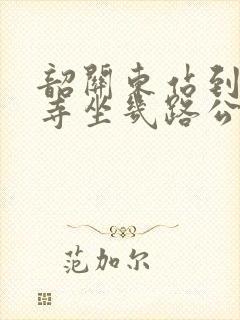 韶關東站到
寺坐幾路公
范加尔